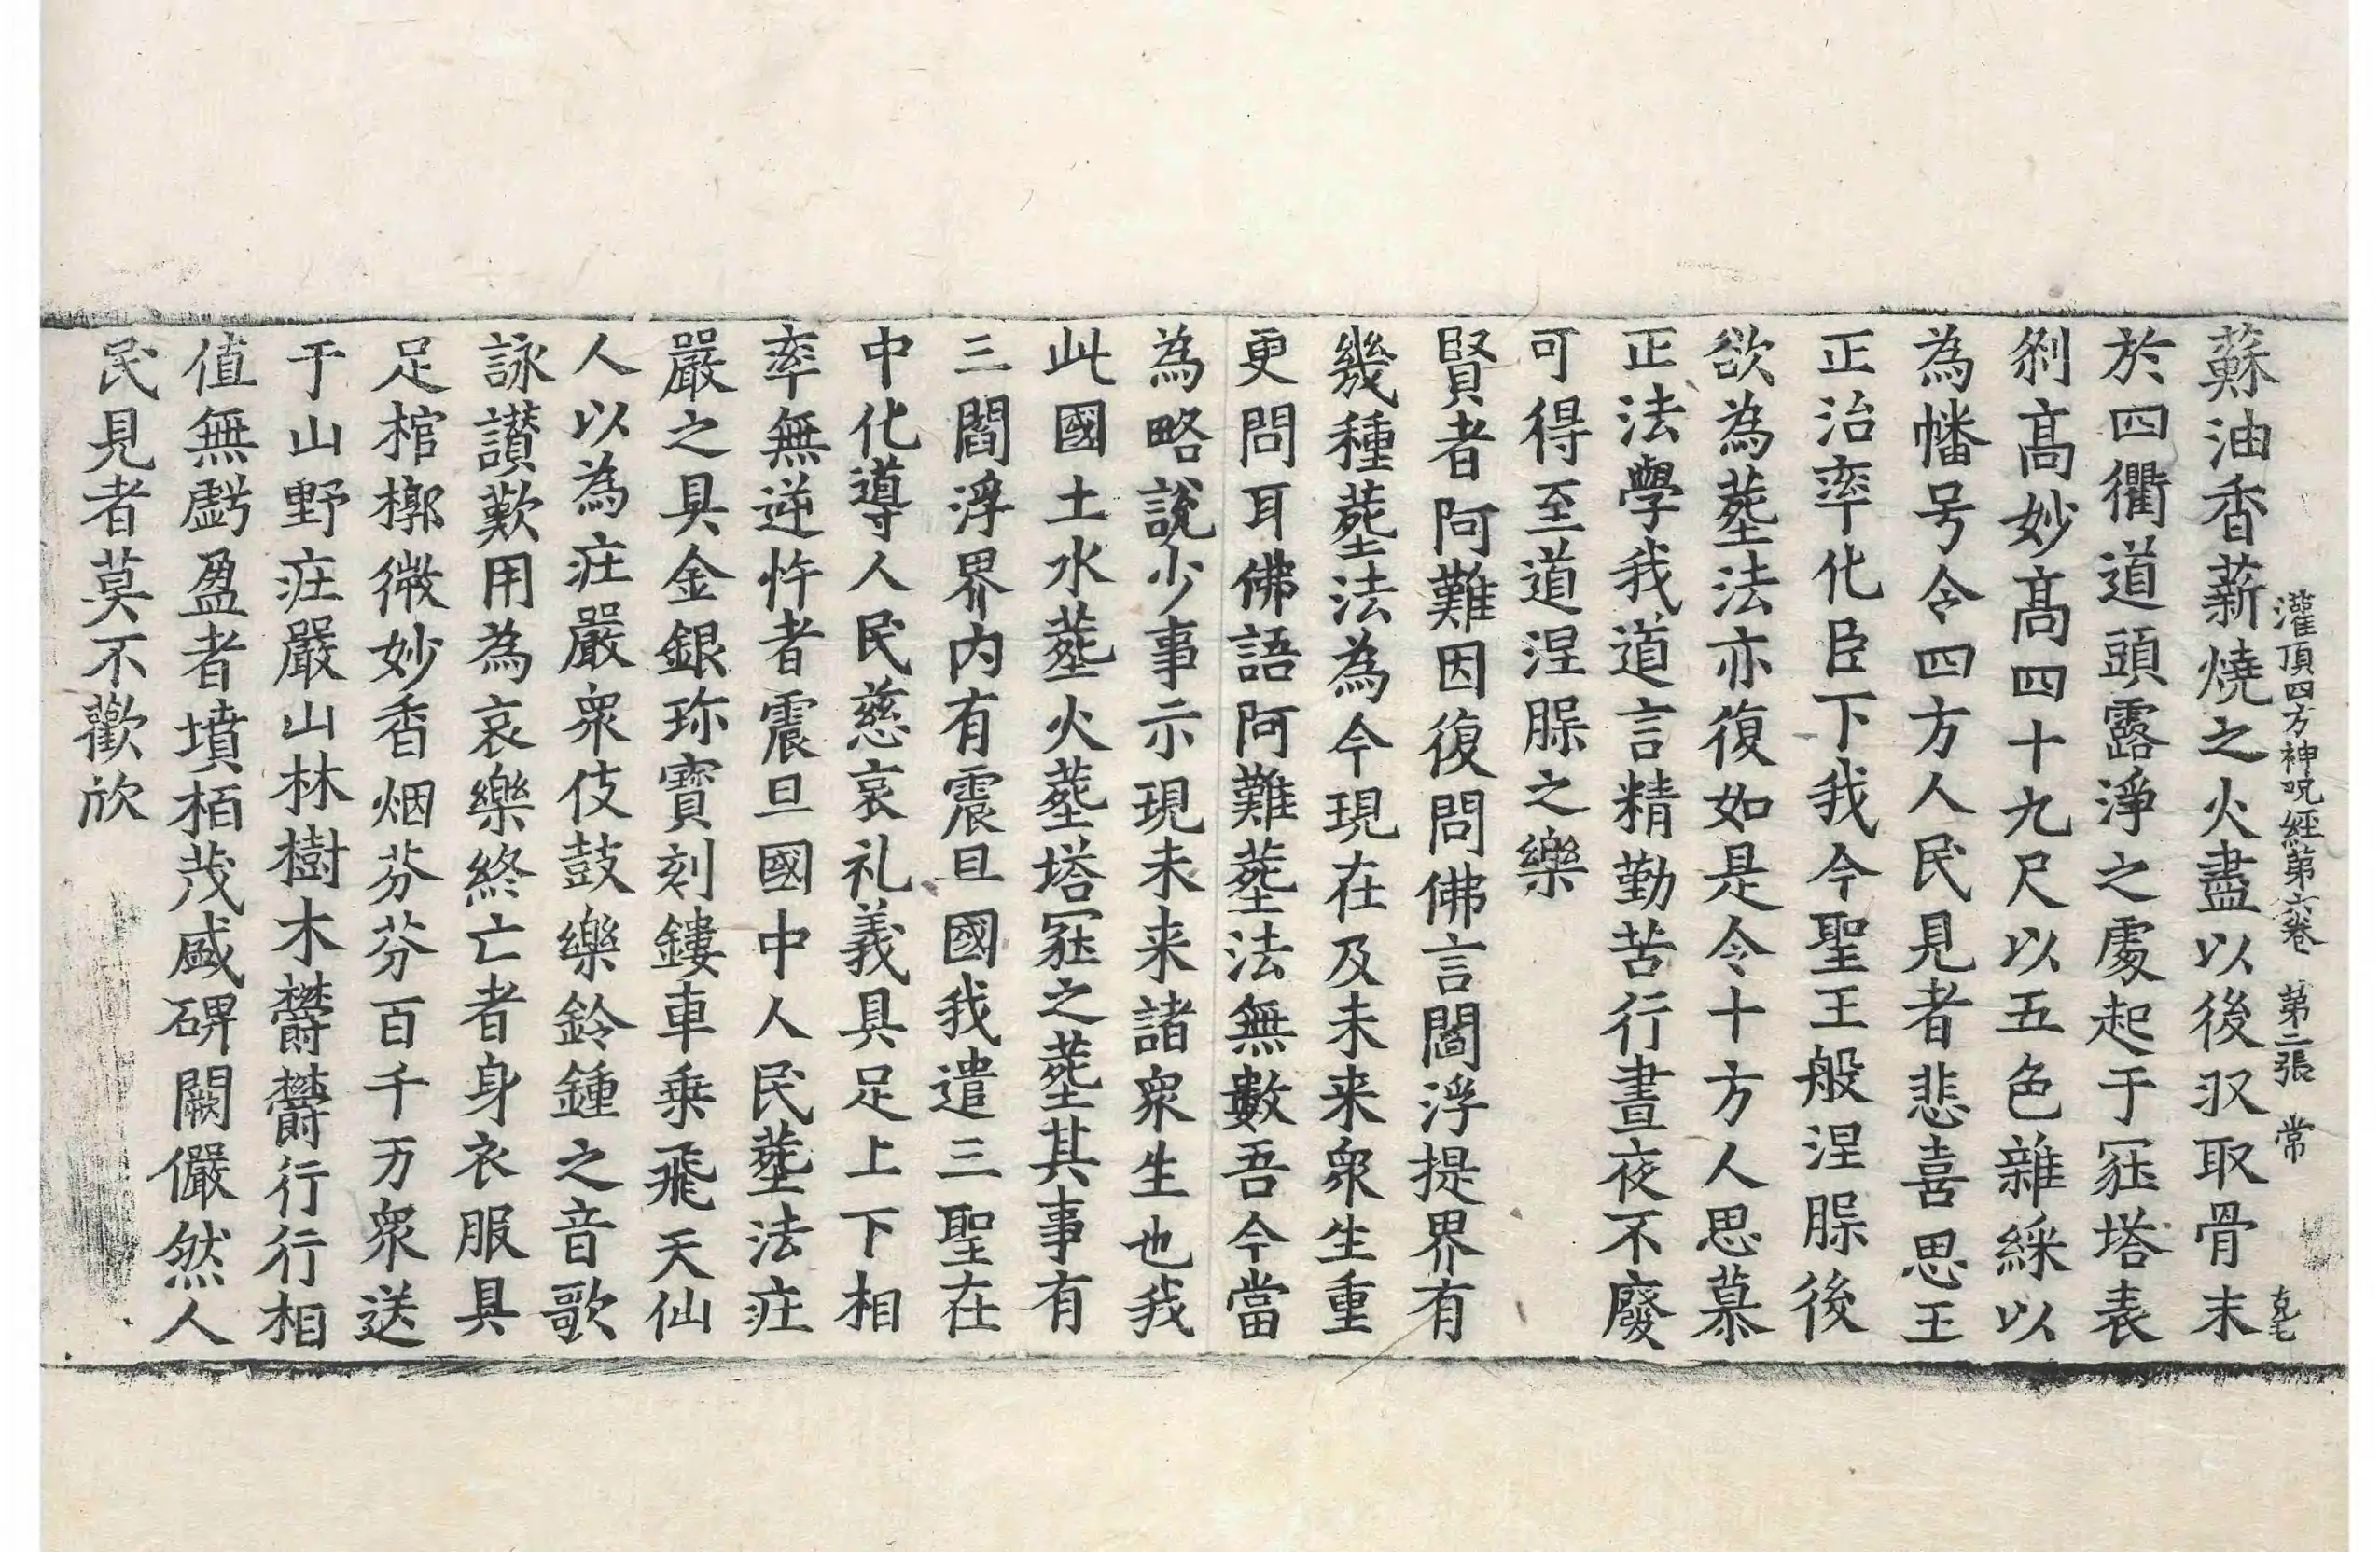 灌頂四方神呪經第六卷 第二張 常 克毛
蘇油香薪燒之火盡以後収取骨末
於四衢道頭露淨之處起于冡塔表
刹髙妙髙四十九尺以五色雜綵以
為幡号令四方人民見者悲喜思王
正治率化臣下我今聖王般涅槃後
欲為塟法亦復如是令十方人思慕
正法學我道言精勤苦行晝夜不廢
可得至道涅槃之樂
賢者阿難因復問佛言閻浮提界有
幾種塟法為今現在及未来衆生重
更問耳佛語阿難塟法無數吾今當
為略說少事示現未来諸衆生也我
此國土水塟火塟塔冡之塟其事有
三閻浮界内有震旦國我遣三聖在
中化導人民慈哀礼義具足上下相
率無逆忤者震旦國中人民塟法庄
嚴之具金銀珎寶刻鏤車乗飛天仙
人以為庄嚴衆伎鼓樂鈴鍾之音歌
詠讃歎用為哀樂終亡者身衣服具
足棺槨微妙香烟芬芬百千万衆送
于山野庄嚴山林樹木欝欝行行相
值無虧盈者墳栢茂盛碑闕儼然人
民見者莫不歡欣